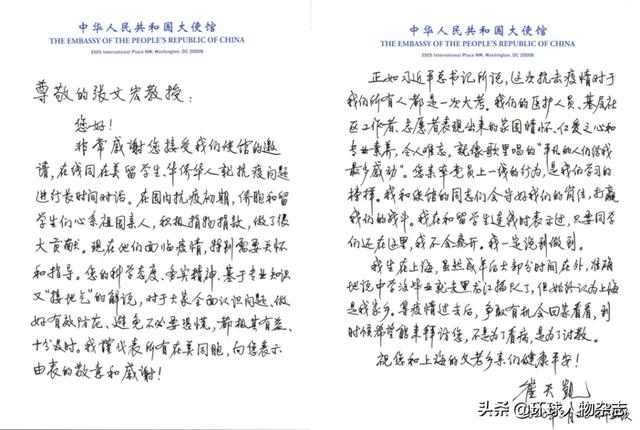 中华人民共和国大使馆
THE EMBASSY OF THE PEOPLE'S REPUBLIC OF CHINA
3505 International Place NW, Washington, DC 20008
尊敬的张文宏教授：
您好！
非常感谢您接受我们使馆的邀
请，在线同在美留学生、华侨华人就抗疫问题
进行长时间对话。在国内抗疫初期，侨胞和留
学生们心系祖国亲人，积极捐物捐款，做了很
大贡献。现在他们面临疫情，特别需要关怀
和指导。您的科学态度、务实精神、基于专业知识
又“接地气”的解说，对于大家全面认识问题、做
好有效防范、避免不必要恐慌，都极其有益、
十分及时。我谨代表所有在美同胞，向您表示
由衷的敬意和感谢！
中华人民共和国大使馆
THE EMBASSY OF THE PEOPLE'S REPUBLIC OF CHINA
3505 International Place NW, Washington, DC 20008
正如习近平总书记所说，这次抗击疫情对于
我们所有人都是一次大考。我们的医护人员、基层社
区工作者、志愿者表现出来的家国情怀、仁爱之心和
专业素养，令人难忘。就像歌里唱的“平凡的人们给我
最多感动”。您亲率党员上一线的行为，是我们学习的
榜样。我和使馆的同志们会守好我们的岗位，打赢
我们的战斗。我在和留学生连线时表示过，只要同学
们还在这里，我不会离开。我一定说到做到。
我生在上海，虽然成年后大部分时间在外，准确
地说中学没毕业就去黑龙江插队了，但始终认为上海
是我家乡。等疫情过去后，争取有机会回家看看，到
时候希望能来拜访您，不是为了看病，是为了讨教。
祝您和上海的父老乡亲们健康平安！
崔天凯
头条@环球人物杂志